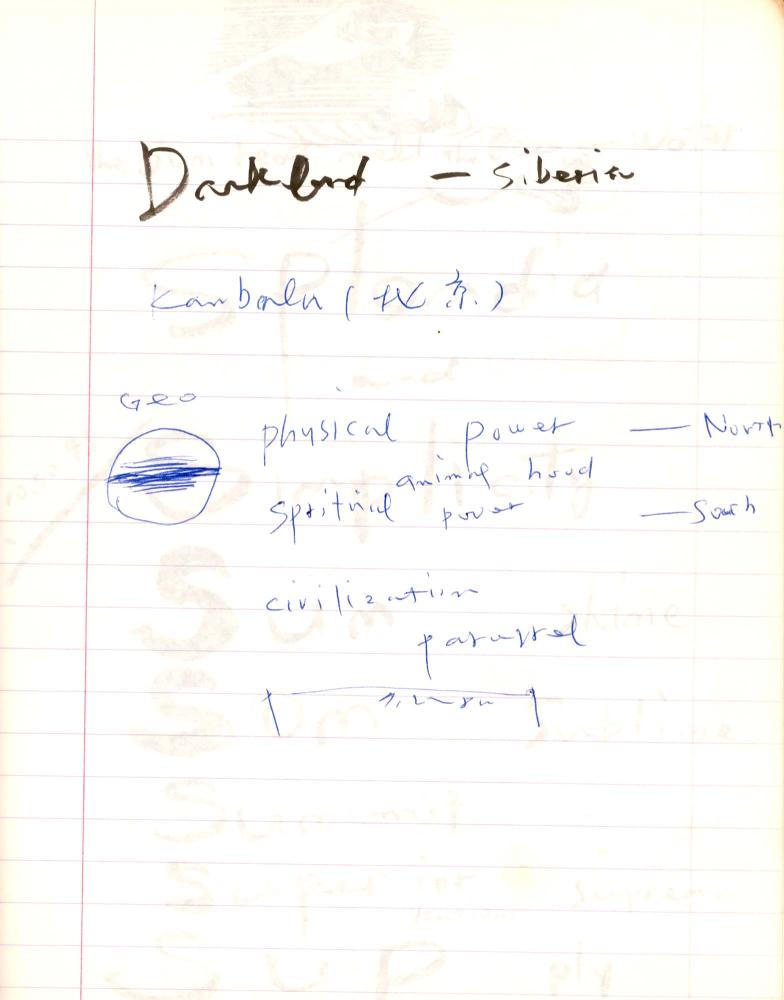 Darkland – Siberia
Kanbalu (北京)
Geo
physical power — North
animal hood
Spritual power — South
civilization
pararrel